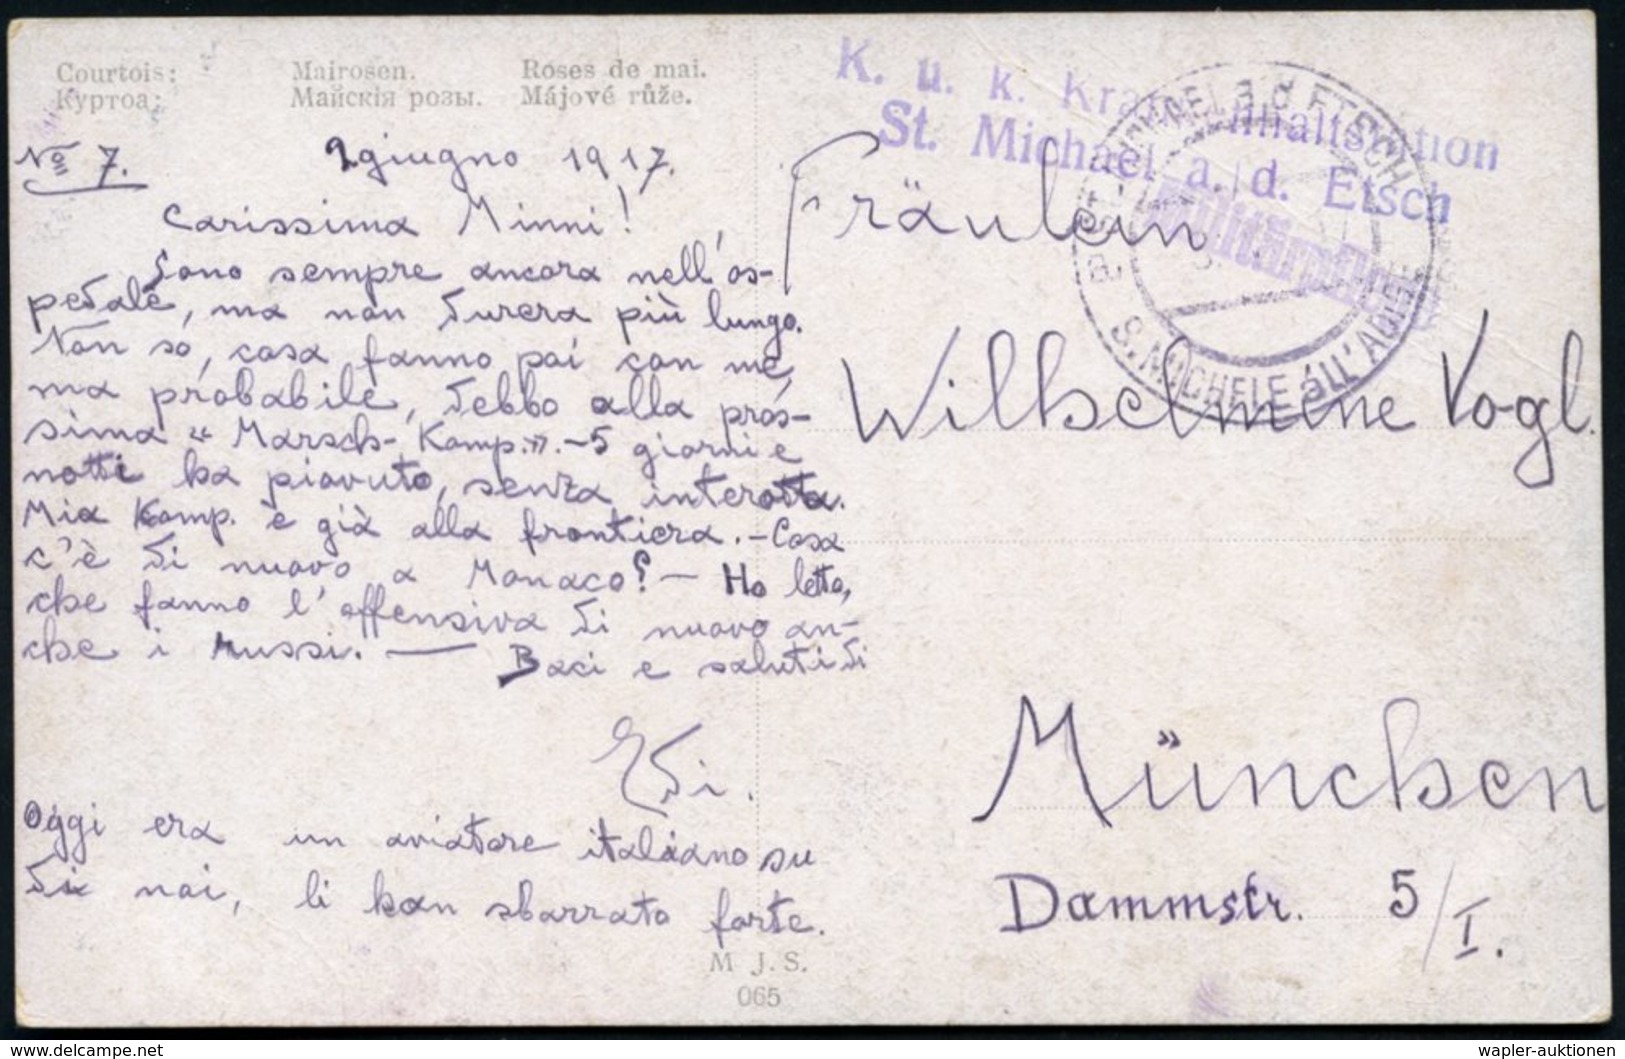 Courtois: Mairosen. Roses de mai.
Куртоа: Майскія розы. Májové růže.
K. u. k.
St. Michael a. d. Etsch
S. MICHELE ALL'ADIGE
No 7. 2 giugno 1917.
Carissima Minni!
Sono sempre ancora nell'os-
pedale, ma non durera più lungo.
Non so, cosa fanno poi con me,
ma probabile, debbo alla pros-
sima "Marsch-Komp.". - 5 giorni e
notti ha piovuto, senza interotta.
Mia Komp. è già alla frontiera. - Cosa
c'è di nuovo a Monaco? - Ho letto,
che fanno l'offensiva di nuovo an-
che i Russi. — Baci e saluti di
Edi.
Oggi era un aviatore italiano su
di noi, li han sbarrato forte.
Fräulein
Wilhelmine Vogl.
München
Dammstr. 5/I.
M. J. S.
065
https://www.delcampe.net
wapler-auktionen